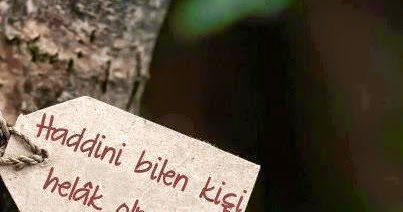 Haddini bilen kişi
helâk